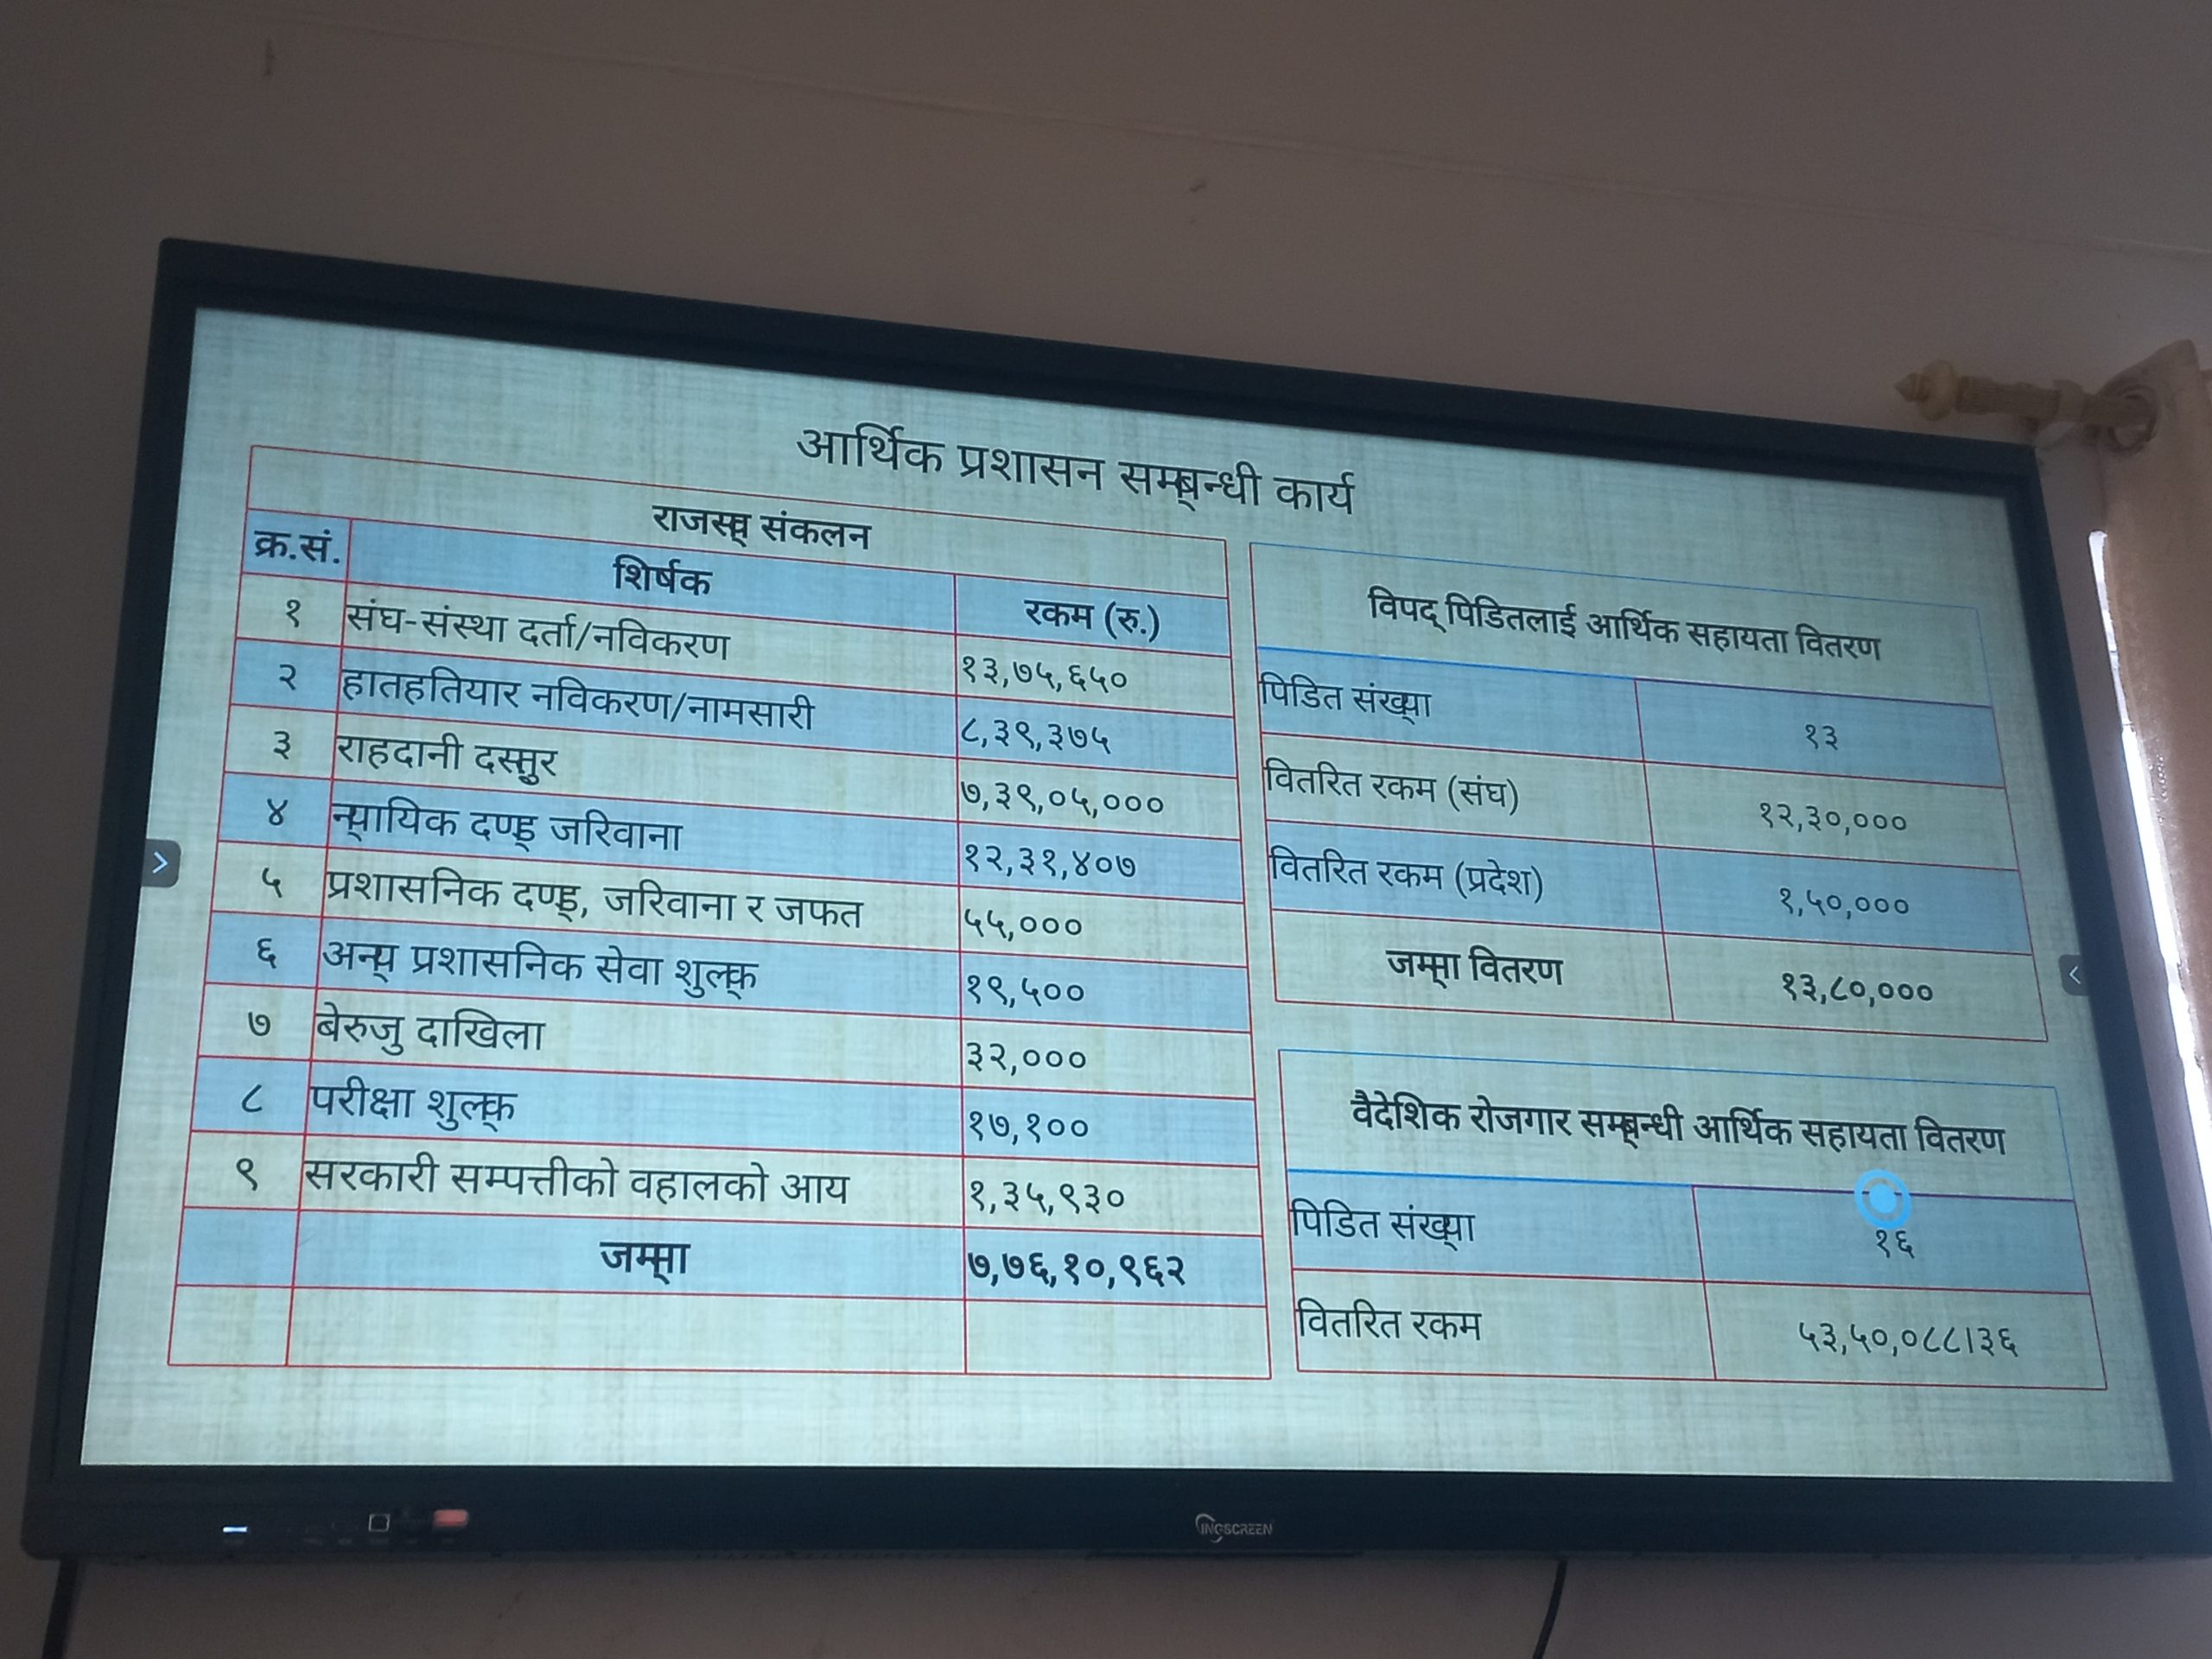 आर्थिक प्रशासन सम्बन्धी कार्य
राजस्व संकलन
क्र.सं. शिर्षक रकम (रु.)
१ संघ-संस्था दर्ता/नविकरण १३,७५,६५०
२ हातहतियार नविकरण/नामसारी ८,३९,३७५
३ राहदानी दस्तुर ७,३९,०५,०००
४ न्यायिक दण्ड जरिवाना १२,३१,४०७
५ प्रशासनिक दण्ड, जरिवाना र जफत ५५,०००
६ अन्य प्रशासनिक सेवा शुल्क १९,५००
७ बेरुजु दाखिला ३२,०००
८ परीक्षा शुल्क १७,१००
९ सरकारी सम्पत्तीको वहालको आय १,३५,९३०
जम्मा ७,७६,१०,९६२
विपद् पिडितलाई आर्थिक सहायता वितरण
पिडित संख्या १३
वितरित रकम (संघ) १२,३०,०००
वितरित रकम (प्रदेश) १,५०,०००
जम्मा वितरण १३,८०,०००
वैदेशिक रोजगार सम्बन्धी आर्थिक सहायता वितरण
पिडित संख्या १६
वितरित रकम ५३,५०,०८८।३६
INGSCREEN